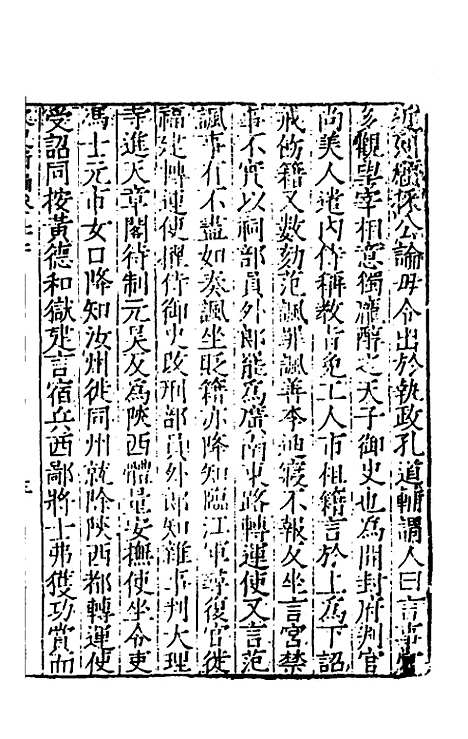 近列懲採公論毋令出於執政孔道輔謂人曰言事官
多觀望宰相意獨龐醇之天子御史也為開封府判官
尚美人遣內侍稱教旨免工人市租籍言於上為下詔
戒飭籍又數劾范諷罪諷善李迪寢不報反坐言宮禁
事不實以祠部員外郎能為廣南東路轉運使又言范
諷事有不盡如奏諷坐貶籍亦降知臨江軍尋復官徙
福建轉運使擢侍御史改刑部員外郎知雜事判大理
寺進天章閣待制元昊反為陝西體量安撫使坐令吏
馮士元市女口降知汝州徙同州就除陝西都轉運使
受詔同按黃德和獄建言宿兵西鄙將士弗獲功賞而